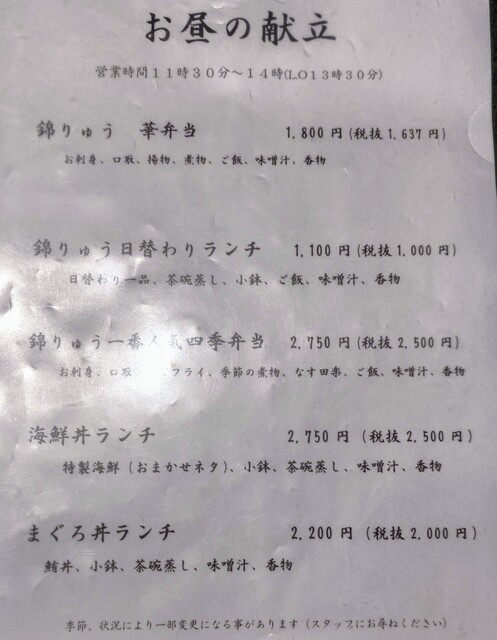 お昼の献立
営業時間11時30分～14時(LO13時30分)
錦りゅう 華弁当 1,800円(税抜1,637円)
お刺身、口取、揚物、煮物、ご飯、味噌汁、香物
錦りゅう日替わりランチ 1,100円(税抜1,000円)
日替わり一品、茶碗蒸し、小鉢、ご飯、味噌汁、香物
錦りゅう一番人気四季弁当 2,750円(税抜2,500円)
お刺身、口取 フライ、季節の煮物、なす田楽、ご飯、味噌汁、香物
海鮮丼ランチ 2,750円(税抜2,500円)
特製海鮮(おまかせネタ)、小鉢、茶碗蒸し、味噌汁、香物
まぐろ丼ランチ 2,200円(税抜2,000円)
鮪丼、小鉢、茶碗蒸し、味噌汁、香物
季節、状況により一部変更になる事があります(スタッフにお尋ねください)